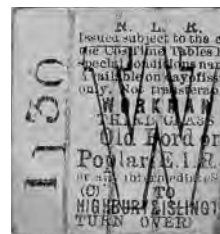 1130
N. L. R.
Issued subject to the
the Co's Time Tables
special conditions
Available on day of iss
only. Not transferab
WORKMAN
THIRD CLASS
Old Ford or
Poplar E.L.R.
or any intermediate S
(C) TO
HIGHBURY & ISLINGT
TURN OVER
W